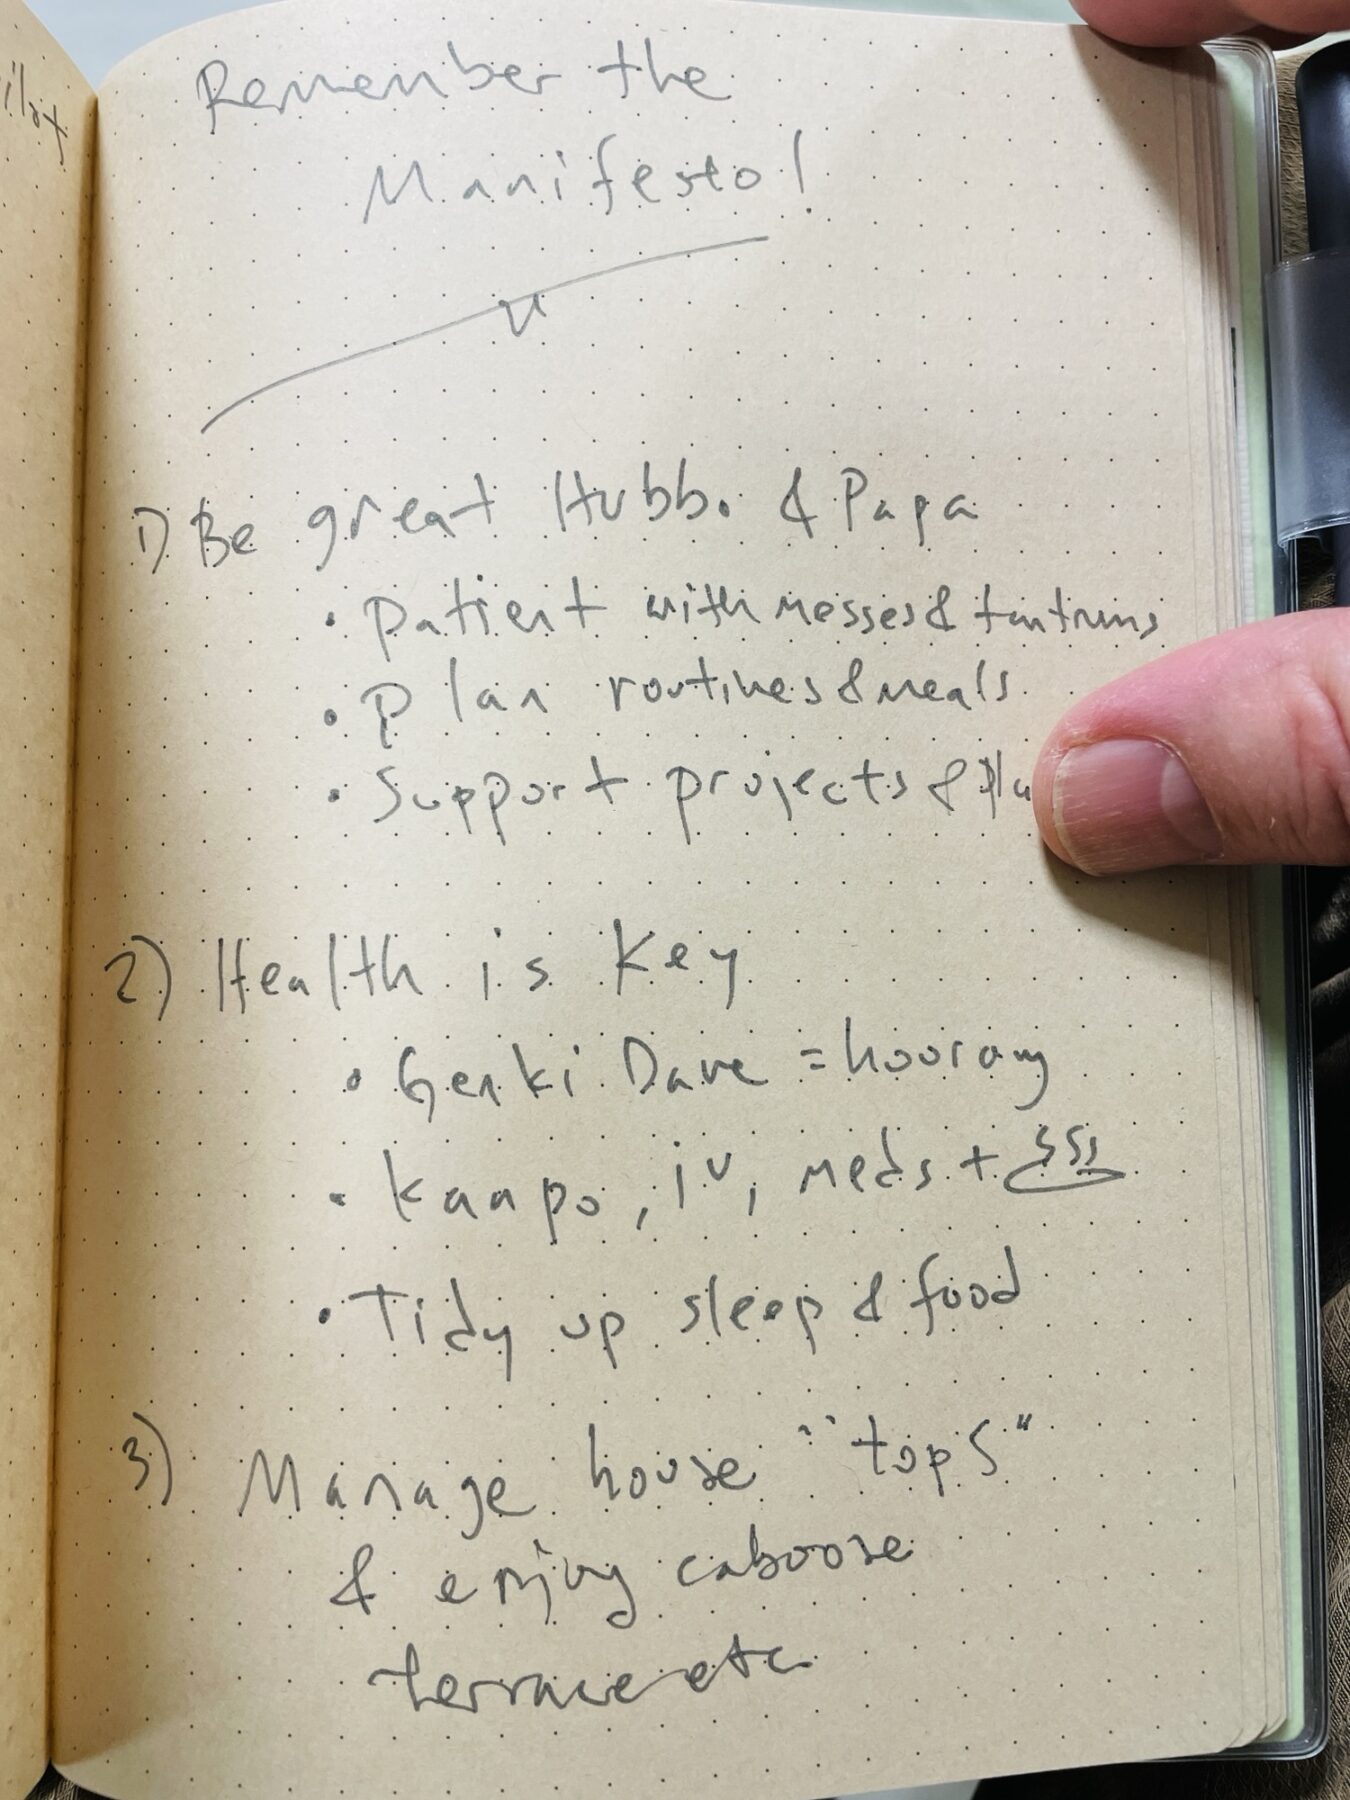 ilot
Remember the
Manifesto!
1) Be great Hubb. & Papa
• Patient with messes & tantrums
• Plan routines & meals
• Support projects &
2) Health is Key
• Genki Dave = hooray
• Kanpo, iv, meds + ♨
• Tidy up sleep & food
3) Manage house "top5"
& enjoy caboose
terrace etc.